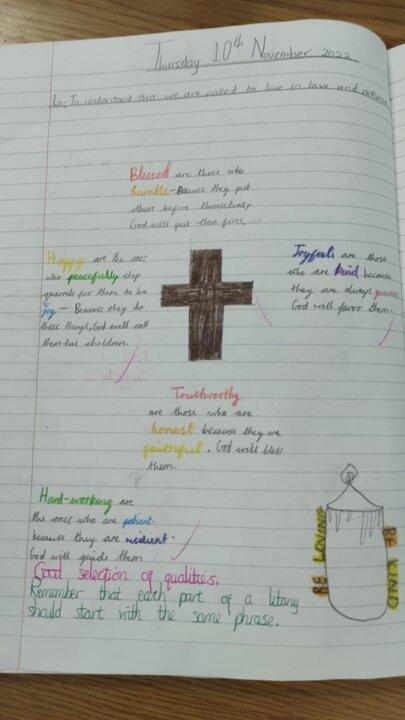 Thursday 10th November 2022
Lo: To understand that we are called to live in love and service
Blessed are those who
humble - Because they put
others before themselves,
God will put them first.
Happy are the ones
who peacefully stop
quarrels for there to be
joy - Because they do
these things, God will call
them his children.
Joyfuls are those
who are kind because
they are always
God will favor them.
Trustworthy
are those who are
honest because they are
faithful. God will bless
them.
Hard-working are
the ones who are patient.
because they are resilient.
God will guide them
Good selection of qualities.
Remember that each part of a litany
should start with the same phrase.
BE LOVING
BE KIND